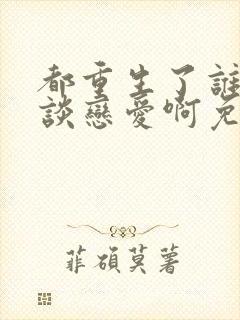 都重生了誰
談戀愛啊免
菲碩莫著